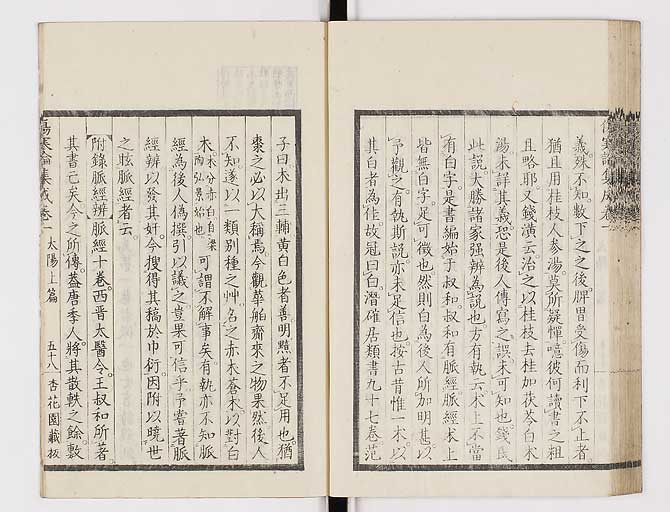 義殊不知數下之之後脾胃受傷而利下不止者
猶且用桂枝人参湯莫所疑憚噫彼何讀書之粗
且略耶又錢潢云治之以桂枝去桂加茯苓白朮
湯未詳其義恐是後人傳寫之誤未可知也錢氏
此説大勝諸家强辨為説也方有執云朮上不當
有白字是書編始于叔和叔和有脈經脈經朮上
皆無白字足可徵也然則白為後人所加明甚以
予觀之有執斯説亦未足信也按古昔惟一朮以
其白者為佳故冠曰白潛確居類書九十七卷范
子曰朮出三輔黄白色者善明㷔者不足用也猶
棗之必以大稱焉今觀華舶齎來之物果然後人
不知遂以一類別種之艸名之赤朮蒼朮以對白
朮朮分赤白自梁陶弘景始也可謂不解事矣有執亦不知脈
經為後人偽撰引以議之豈果可信乎予嘗著脈
經辨以發其奸今搜得其稿於巾衍因附以曉世
之眩脈經者云
附錄脈經辨脈經十卷西晋太醫令王叔和所著
其書亡矣今之所傳蓋唐季人將其散軼之餘敷
傷寒論集成卷一 太陽上篇 五十八 杏花園藏板